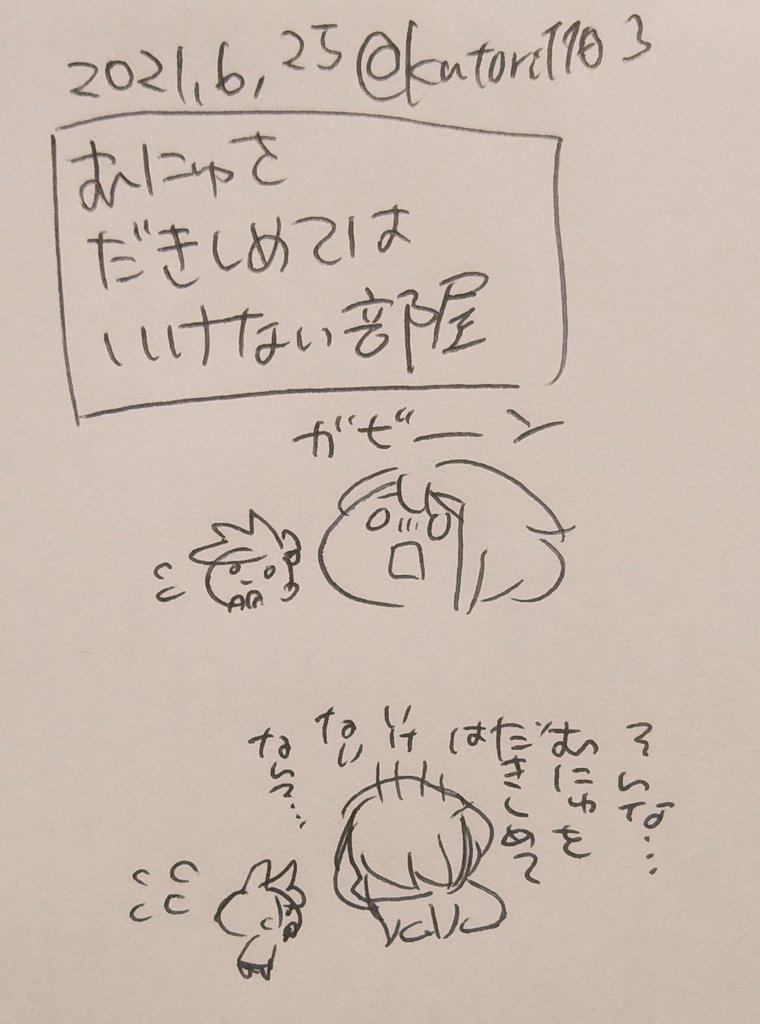 2021.6.25 @katori1103
むにゅを
だきしめては
いけない部屋
ガゼーン
そんな…
むにゅを
だきしめて
は
いけ
ない
なんて…